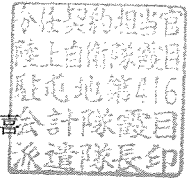 分任契約担当官
陸上自衛隊霞目
駐屯地第416
喜会計隊霞目
派遣隊長印